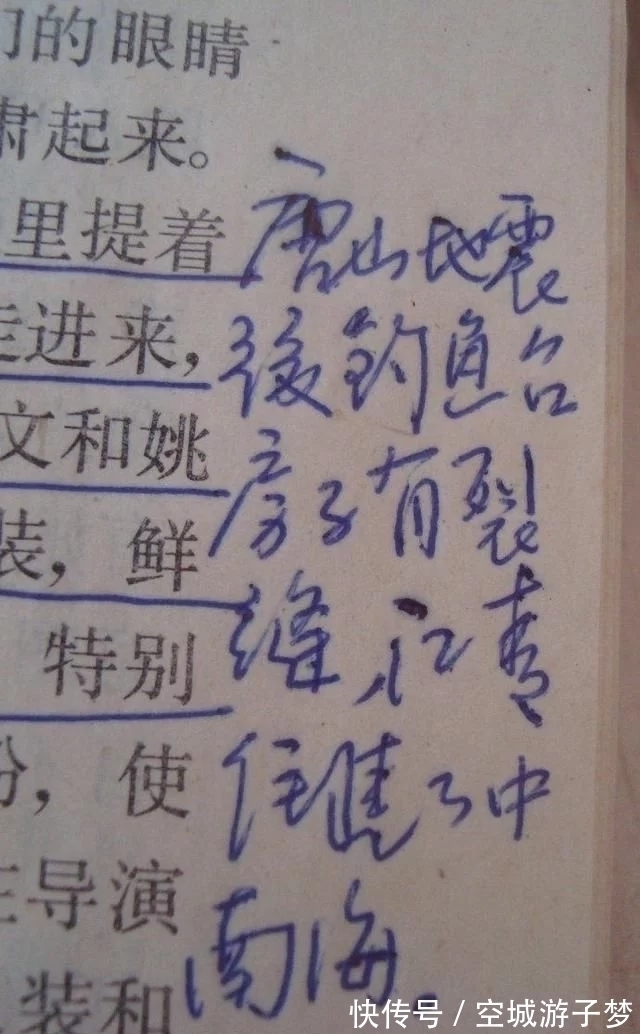 们的眼睛
肃起来。
里提着
走进来，
文和姚
装，鲜
特别
份，使
导演
装和
唐山地震
後钓鱼台
房子有裂
缝，江青
住進了中
南海。
快传号 / 空城游子梦